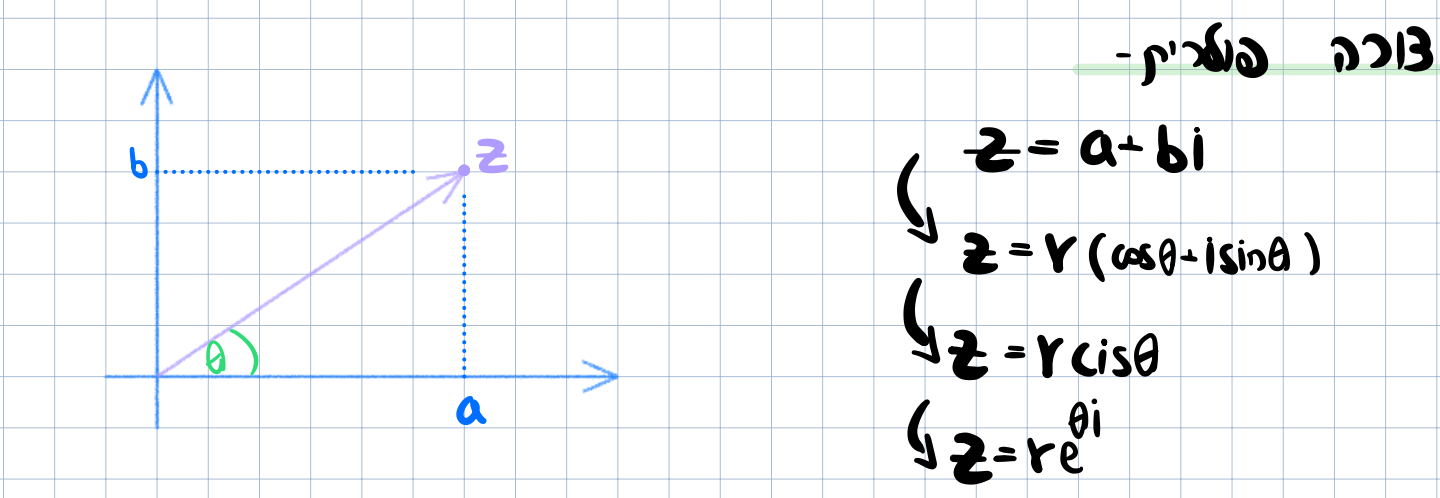 צורה פולרית -
z = a + bi
z = r (cosθ + isinθ)
z = r cisθ
z = re^{θi}
b
z
θ
a